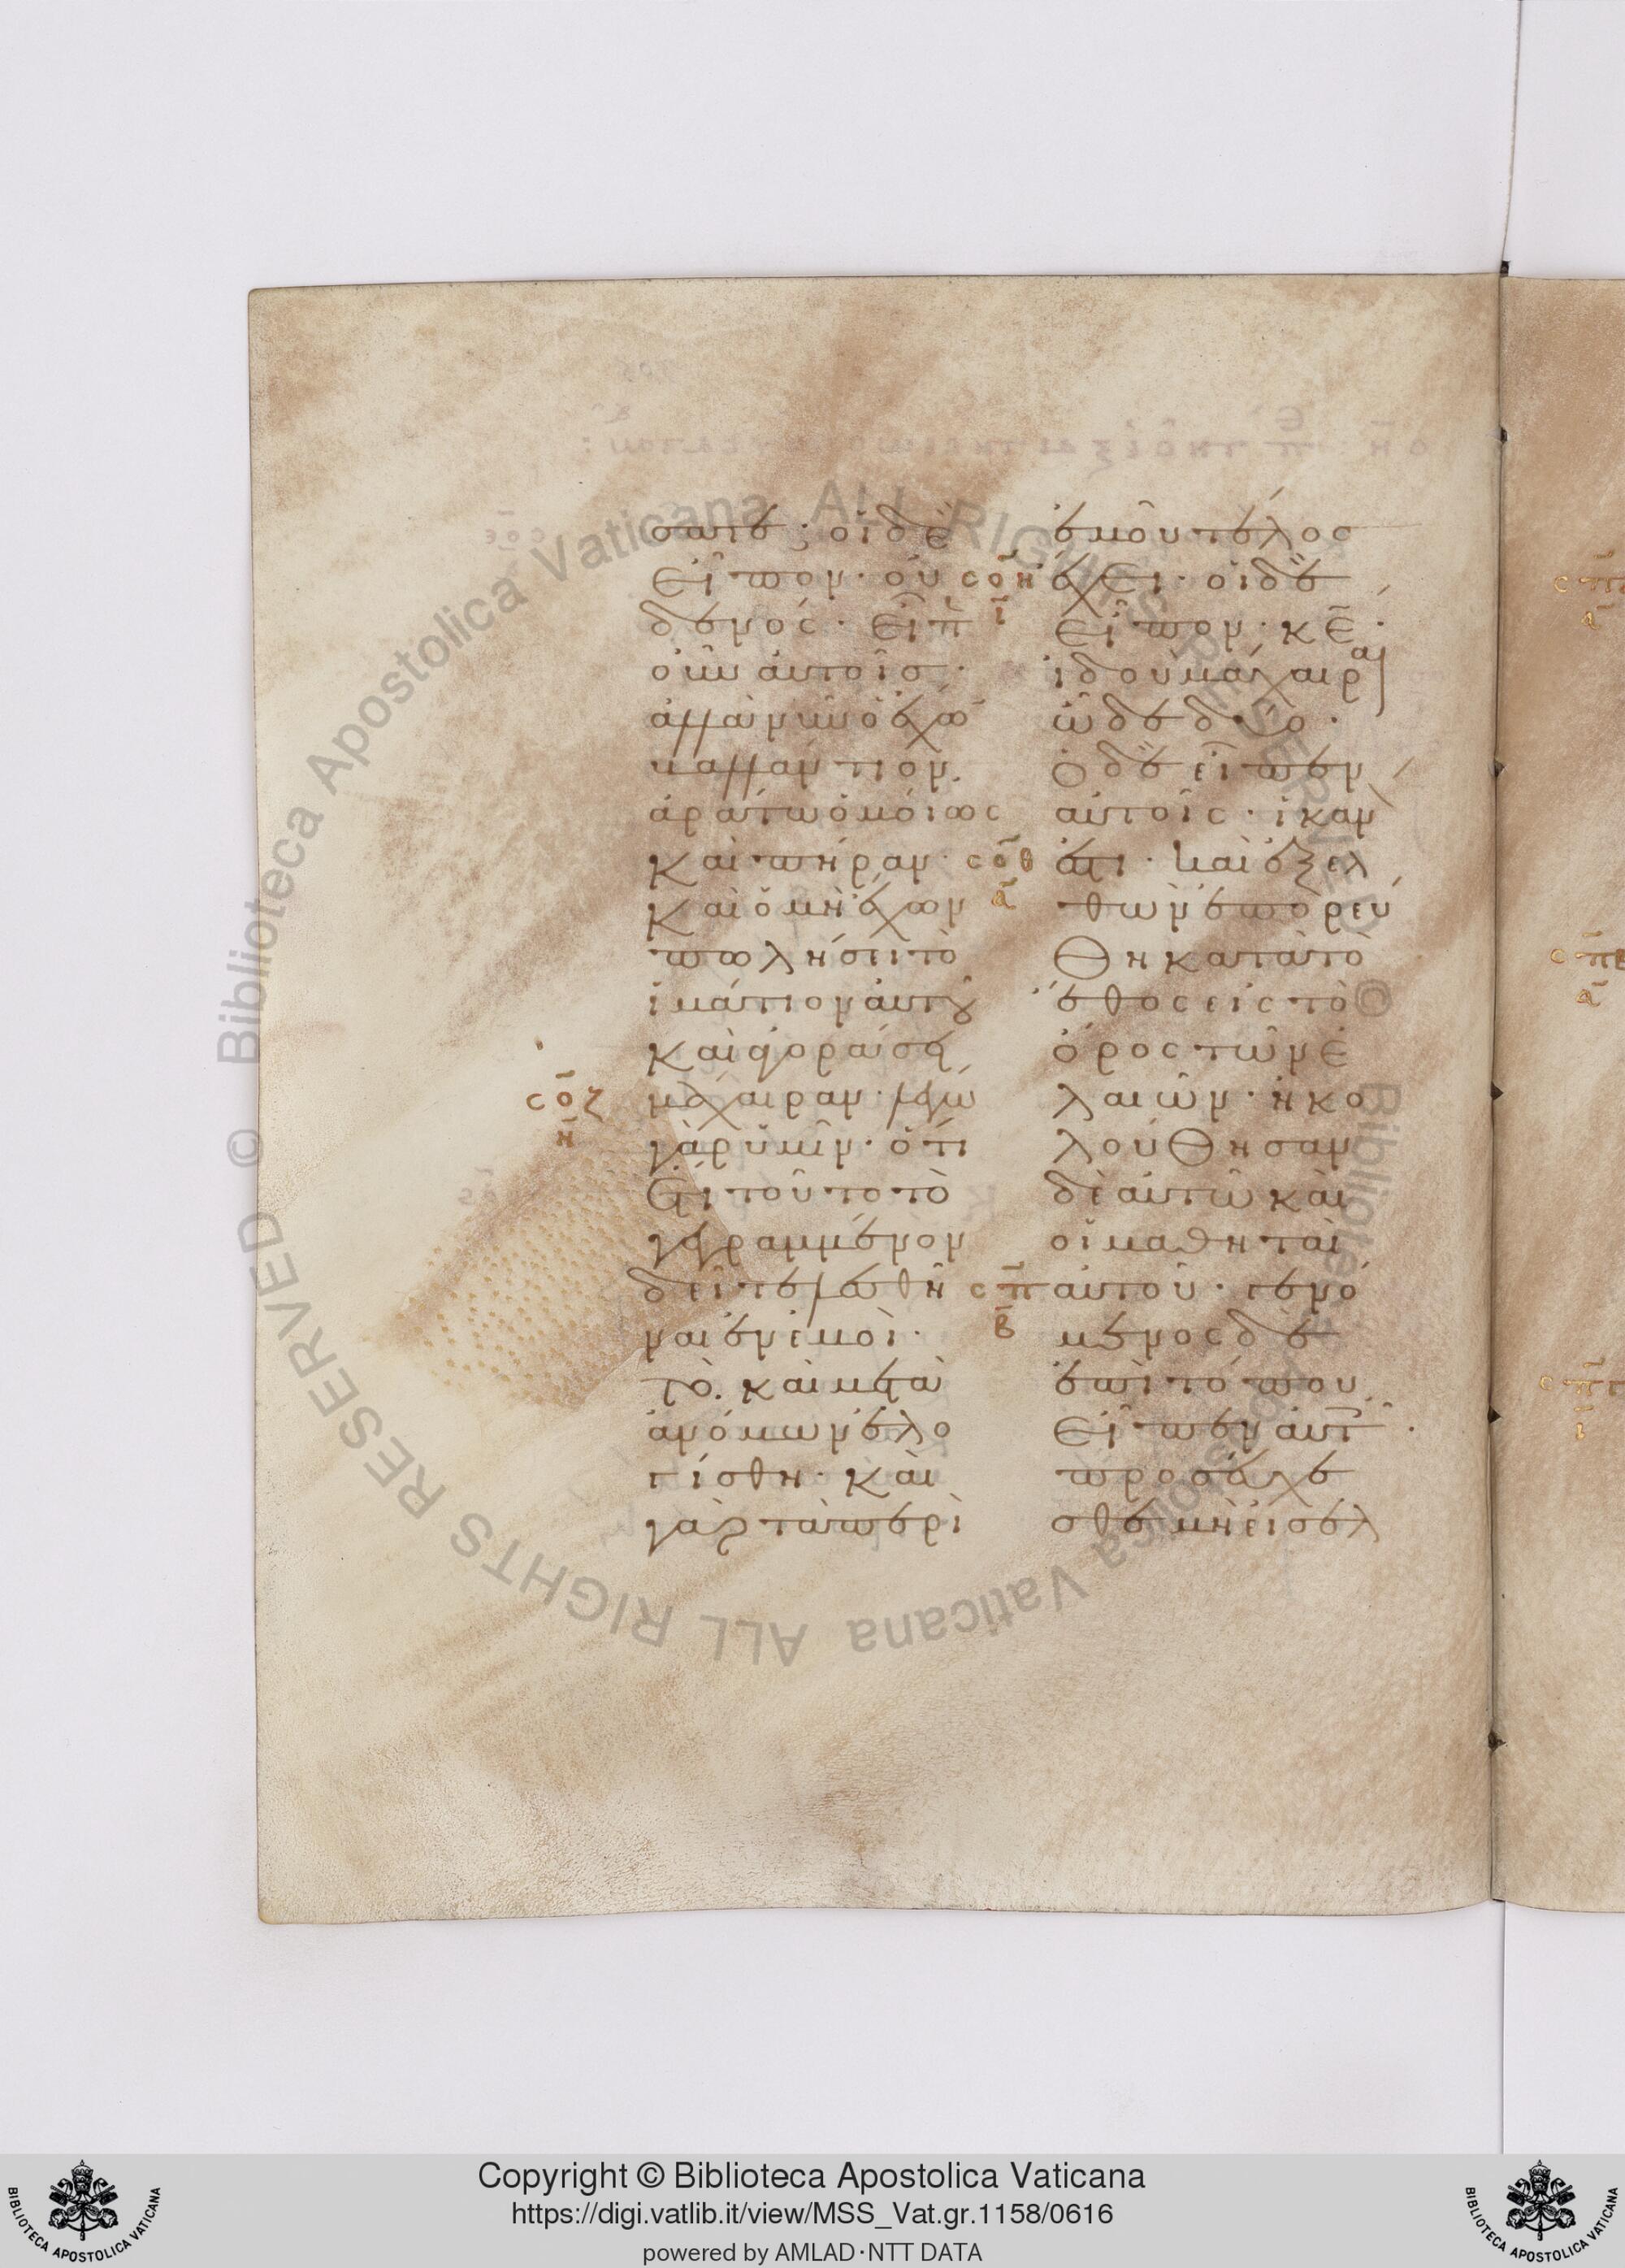 σατε· οἱ δὲ
εἶπον· οὐ
δενός· εἶπ
οὖν αὐτοῖσ·
ἀλλὰ νῦν ὁ ἔχω
βαλλάντιον
ἀράτω ὁμοίως
καὶ πήραν·
καὶ ὁ μὴ ἔχων
πωλήσει τὸ
ἱμάτιον αὐτοῦ
καὶ ἀγοράσει
μάχαιραν· λέγω
γὰρ ὑμῖν· ὅτι
ἔτι τοῦτο τὸ
γεγραμμένον
δεῖ τελεσθῆ
ναι ἐν ἐμοὶ·
τὸ· καὶ μετὰ
ἀνόμων ἐλο
γίσθη· καὶ
γὰρ τὰ περὶ
ἐμοῦ τέλος
ἔχει· οἱ δὲ
εἶπον· κε·
ἰδοὺ μάχαιραι
ὧδε δύο·
ὁ δὲ εἶπεν
αὐτοῖς· ἱκαν
ἐστι· καὶ ἐξελ
θὼν ἐπορεύ
θη κατὰ τὸ
ἔθος εἰς τὸ
ὄρος τῶν ἐ
λαιῶν· ἠκο
λούθησαν
δὲ αὐτῶ καὶ
οἱ μαθηταὶ
αὐτοῦ· γενό
μενος δὲ
ἐπὶ τόπου
εἶπεν αὐτ·
προσεύχε
σθε μὴ εἰσελ
σοζ
η
σοη
ι
σοθ
α
σπ
β
Copyright © Biblioteca Apostolica Vaticana
https://digi.vatlib.it/view/MSS_Vat.gr.1158/0616
powered by AMLAD·NTT DATA
BIBLIOTECA APOSTOLICA VATICANA
BIBLIOTECA APOSTOLICA VATICANA
© Biblioteca Apostolica Vaticana ALL RIGHTS RESERVED